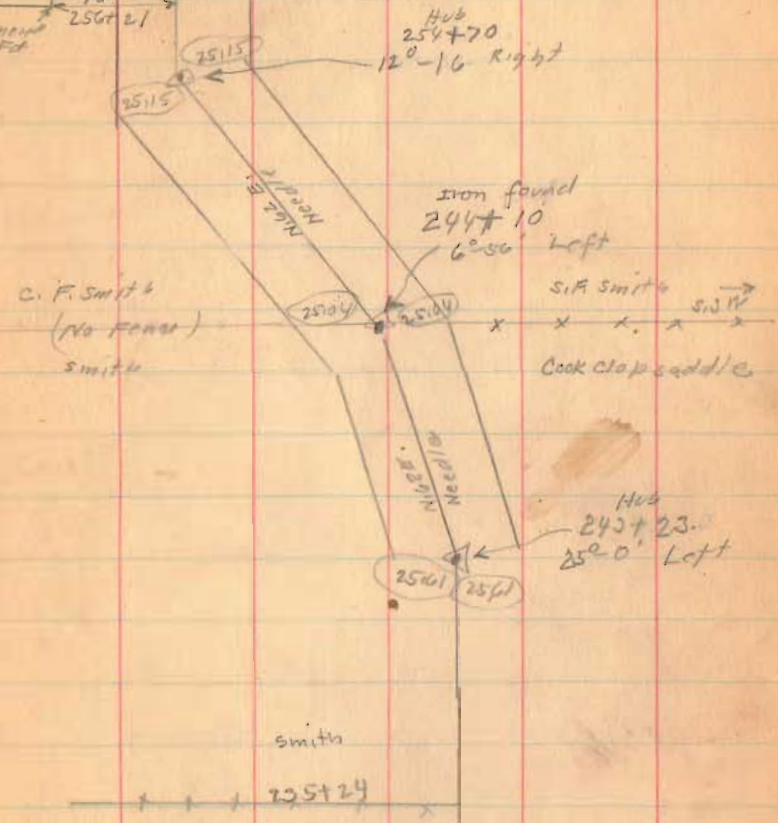 256+21
Hub
254+70
12°-16 Right
25.15
25.15
Needle
Iron found
244+10
6°-56' Left
C. F. Smith
(No Fence)
Smith
25.04
25.04
S.F. Smith
Cook Clapsaddle
Needle
Hub
243+23.
25°-0' Left
25.61
25.61
Smith
235+24